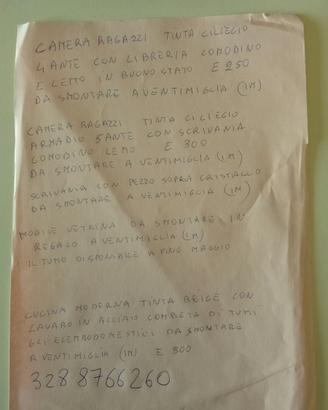 CAMERA RAGAZZI TINTA CILIEGIO
4 ANTE CON LIBRERIA COMODINO
E LEMO IN BUONO STATO E 250
DA SMONTARE A VENTIMIGLIA (IM)
CAMERA RAGAZZI TINTA CILIEGIA
ARMADIO 5 ANTE CON SCRIVANIA
COMODINO LEMO E 300
DA SMONTARE A VENTIMIGLIA (IM)
SCRIVANIA CON PEZZO SOPRA CRISTALLO
DA SMONTARE A VENTIMIGLIA (IM)
MOBILE VETRINA DA SMONTARE IN
REGALO A VENTIMIGLIA (IM)
IL TUTTO DISPONIBILE A FINE MAGGIO
CUCINA MODERNA TINTA BEIGE CON
LAVABO IN ACCIAIO COMPLETA DI TUTTI
GLI ELETRODOMESTICI DA SMONTARE
A VENTIMIGLIA (IM) E 800
328 8766260